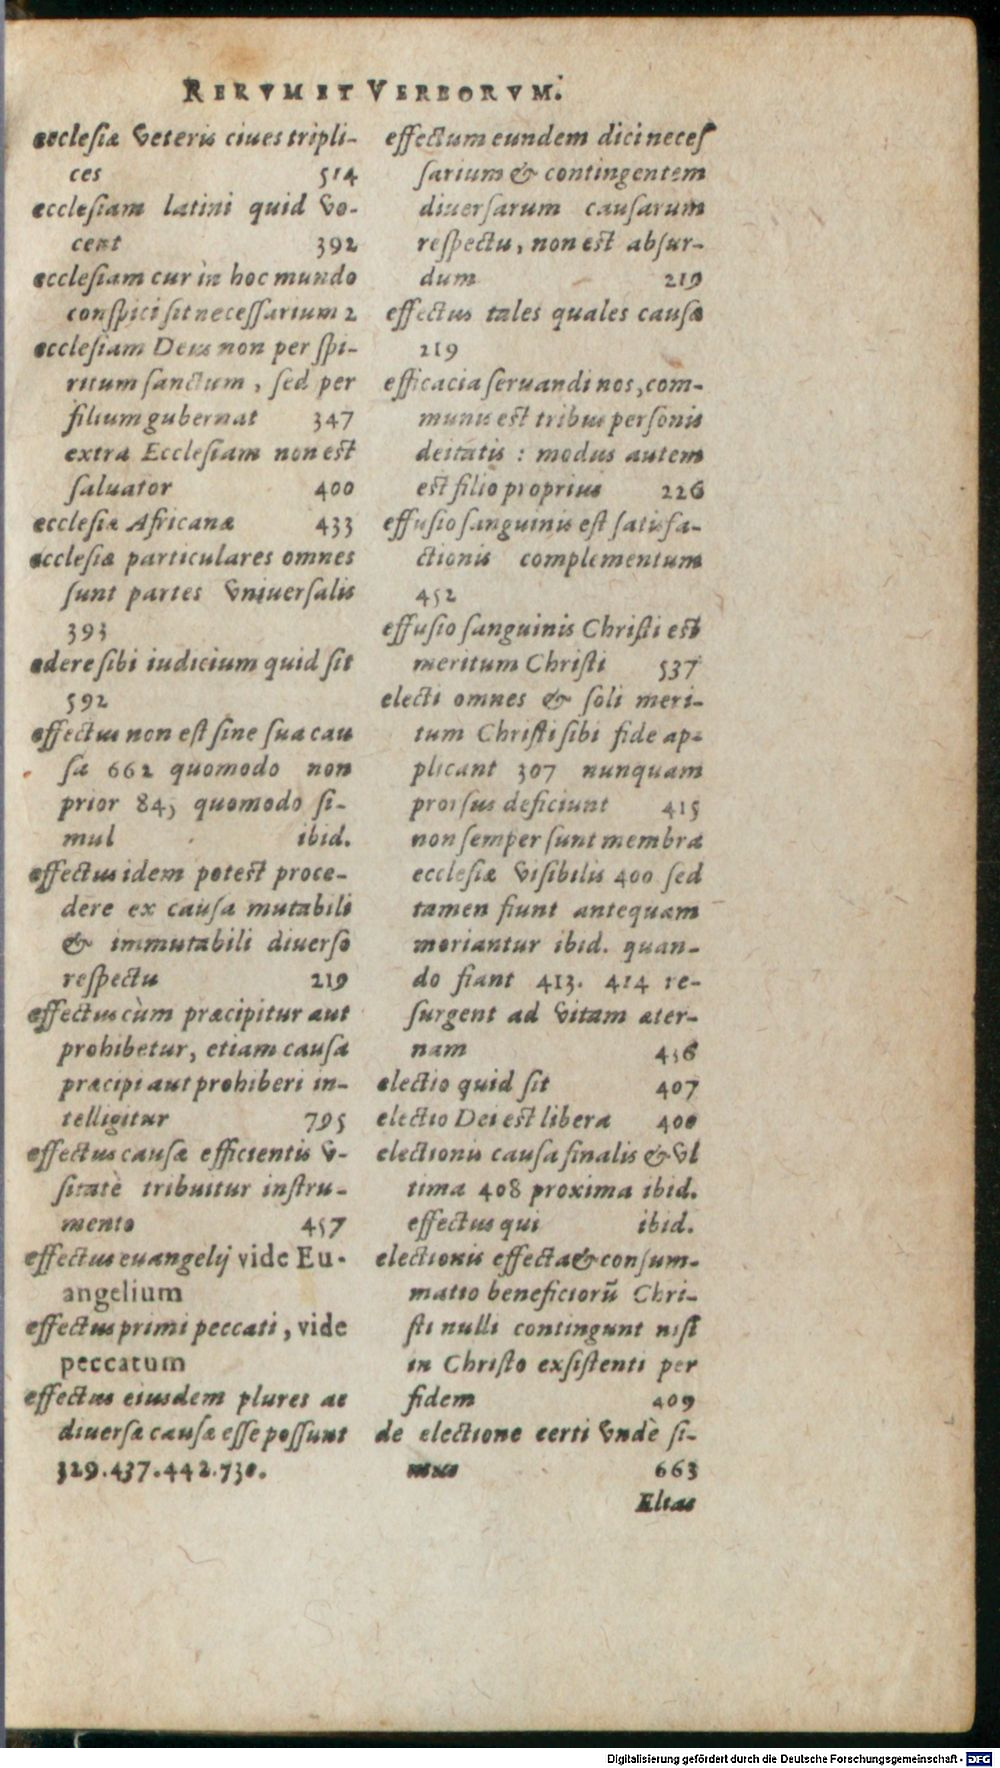 RERVM ET VERBORVM.
ecclesiæ veteris ciues tripli-
ces 514
ecclesiam latini quid vo-
cent 392
ecclesiam cur in hoc mundo
conspici sit necessarium 2
ecclesiam Deus non per spi-
ritum sanctum, sed per
filium gubernat 347
extra Ecclesiam non est
saluator 400
ecclesiæ Africanæ 433
ecclesiæ particulares omnes
sunt partes vniuersalis
393
edere sibi iudicium quid sit
592
effectus non est sine sua cau
sa 662 quomodo non
prior 845 quomodo si-
mul ibid.
effectus idem potest proce-
dere ex causa mutabili
& immutabili diuerso
respectu 219
effectus cùm præcipitur aut
prohibetur, etiam causa
præcipi aut prohiberi in-
telligitur 795
effectus causæ efficientis v-
sitatè tribuitur instru-
mento 457
effectus euangelij vide Eu-
angelium
effectus primi peccati, vide
peccatum
effectus eiusdem plures ac
diuersæ causæ esse possunt
329.437.442.730.
effectum eundem dici neces
sarium & contingentem
diuersarum causarum
respectu, non est absur-
dum 219
effectus tales quales causæ
219
efficacia seruandi nos, com-
munis est tribus personis
deitatis : modus autem
est filio proprius 226
effusio sanguinis est satisfa-
ctionis complementum
452
effusio sanguinis Christi est
meritum Christi 537
electi omnes & soli meri-
tum Christi sibi fide ap-
plicant 307 nunquam
prorsus deficiunt 415
non semper sunt membra
ecclesiæ visibilis 400 sed
tamen fiunt antequam
moriantur ibid. quan-
do fiant 413. 414 re-
surgent ad vitam æter-
nam 436
electio quid sit 407
electio Dei est libera 400
electionis causa finalis & vl
tima 408 proxima ibid.
effectus qui ibid.
electionis effecta & consum-
matio beneficiorũ Chri-
sti nulli contingunt nisi
in Christo exsistenti per
fidem 409
de electione certi vndè si-
mus 663
Elias
Digitalisierung gefördert durch die Deutsche Forschungsgemeinschaft - DFG